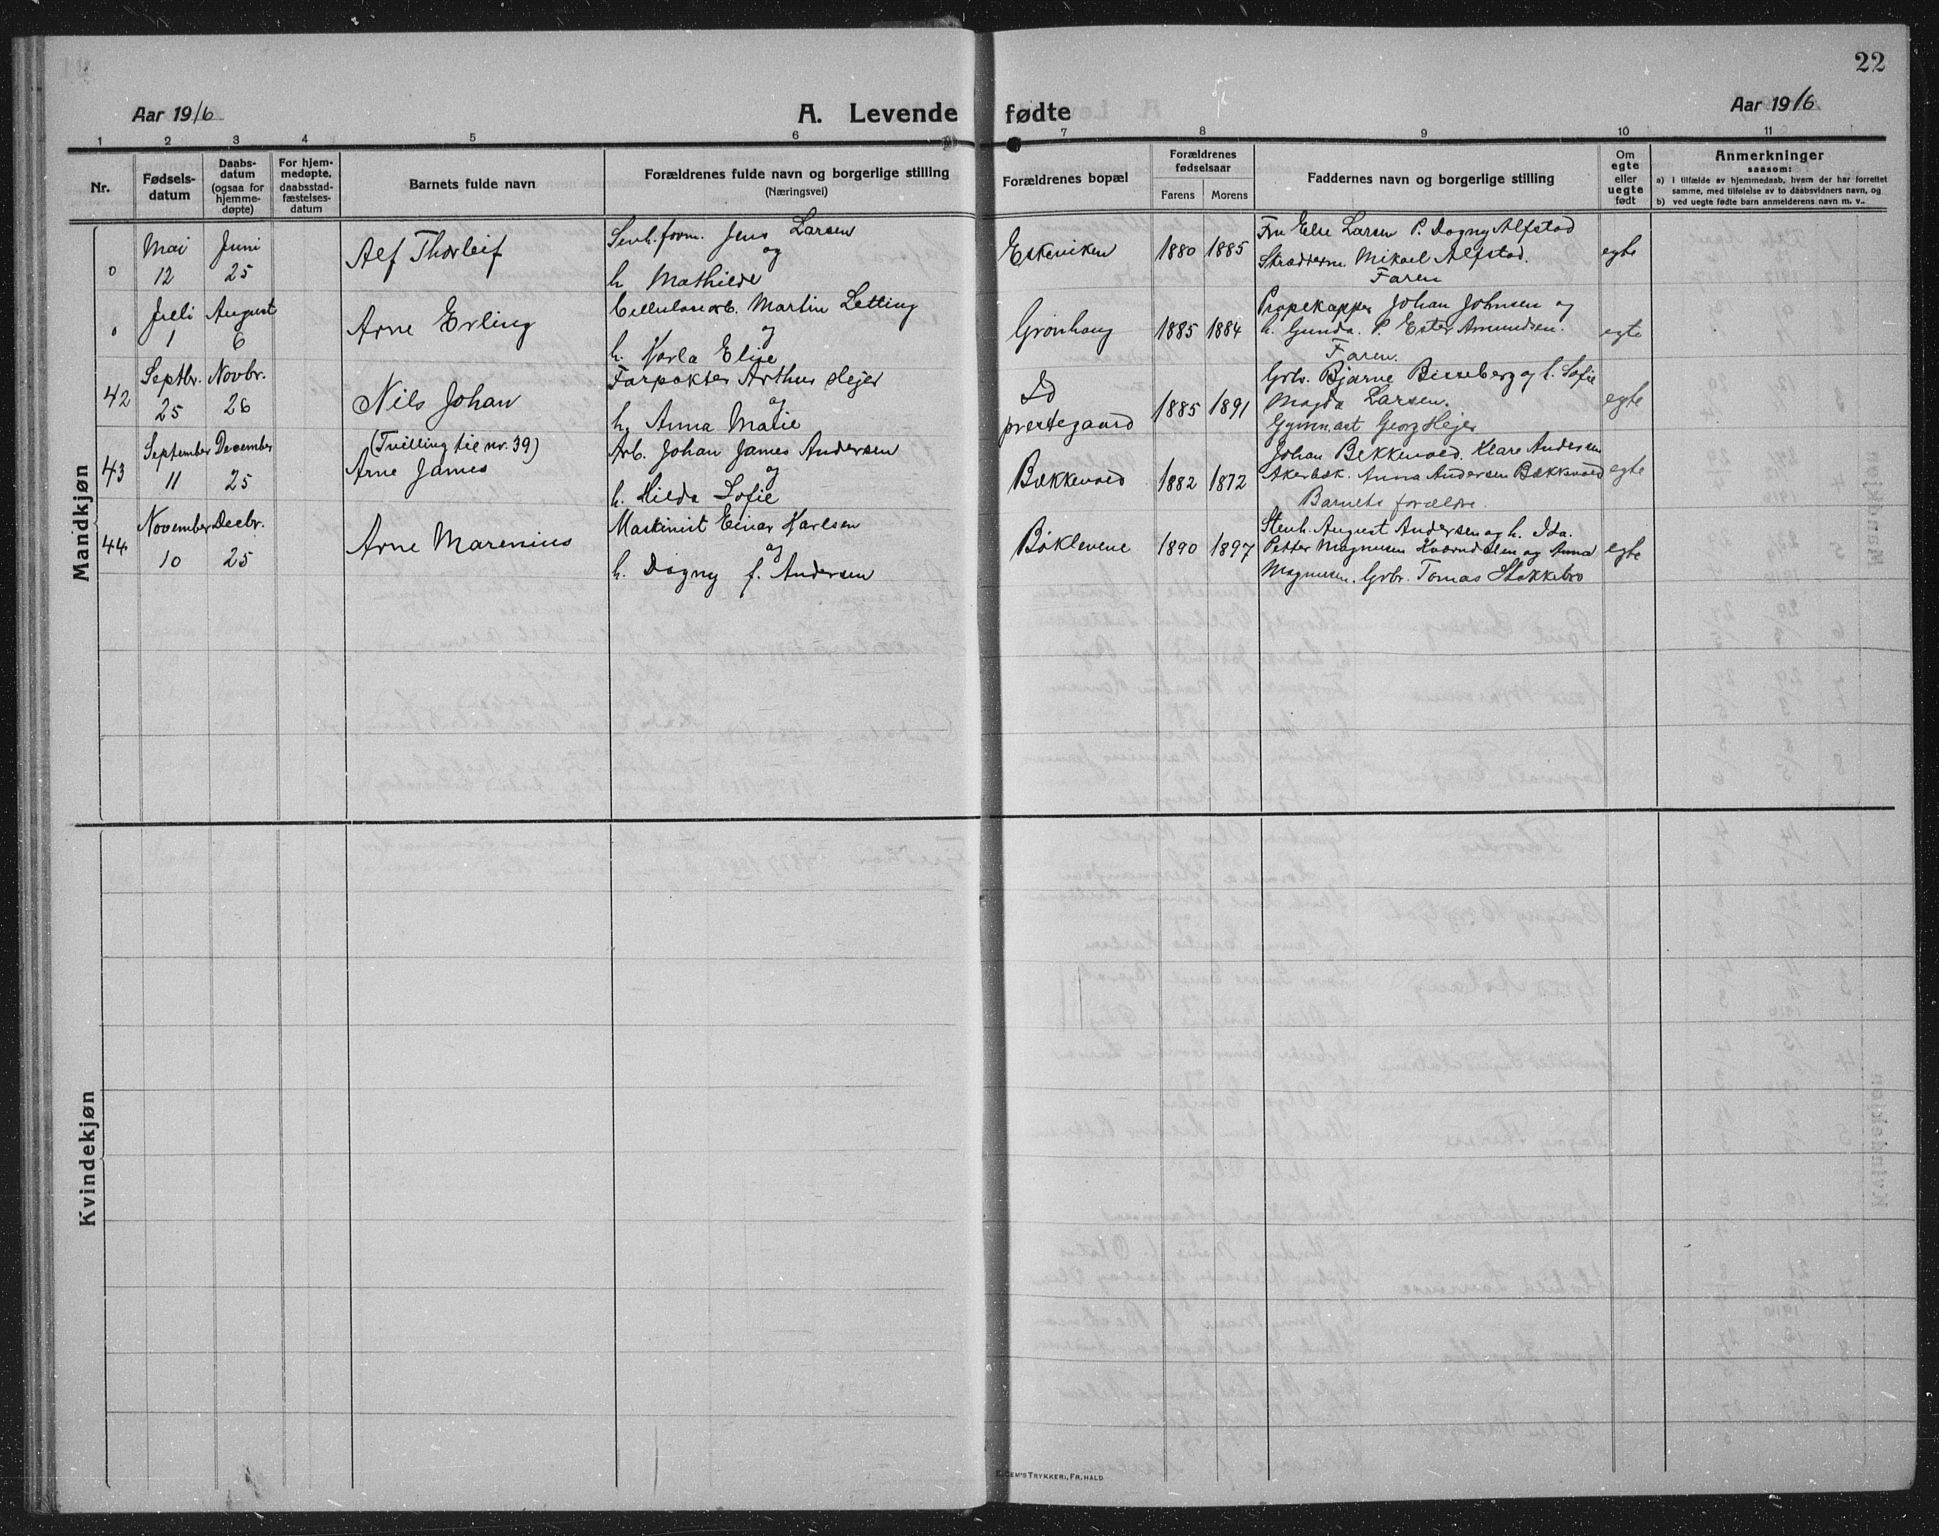 22
Aar 1916
A. Levende fødte
Aar 1916
1 2 3 4 5 6 7 8 9 10 11
Nr.
Fødsels-
datum
Daabs-
datum
(ogsaa for
hjemme-
døpte)
For hjem-
medøpte,
daabsstad-
fæstelses-
datum
Barnets fulde navn
Forældrenes fulde navn og borgerlige stilling
(Næringsvei)
Forældrenes bopæl
Forældrenes
fødselsaar
Farens Morens
Faddernes navn og borgerlige stilling
Om
egte
eller
uegte
født
Anmerkninger
saasom:
a) i tilfælde av hjemmedaab, hvem der har forrettet
samme, med tilføielse av to daabsvidners navn, og
b) ved uegte fødte barn anmelderens navn m. v..
Mandkjøn
0
Mai
12
Juni
25
Alf Thorleif
Stenh.form. Jens Larsen
og
h. Mathilde
Eskeviken
1880 1885
Fru Else Larsen P. Dagny Alfstad
Skrædderm. Mikael Alfstad.
Faren
egte
0
Juli
1
August
6
Arne Erling
Cellulosearb. Martin Letting
og
h. Karla Elise
Grønhaug
1885 1884
Propekapper Johan Johnsen og
h. Gunda. P. Ester Amundsen.
Faren.
egte
42
Septbr.
25
Novbr.
26
Nils Johan
Forpakter Arthur Hejer
og
h. Anna Marie
Id
prestegaard
1885 1891
Grbr. Bjarne Bisseberg og h. Sofie
Magda Larsen.
Gymnast Georg Hejer
egte
43
September
11
December
25
(Tvilling til nr. 39)
Arne James
Arb. Johan James Andersen
og
h. Hilda Sofie
Bækkevold
1882 1872
Johan Bekkevold. Klare Andersen
Akerbæk. Anna Andersen Bækkevold
Barnets forældre.
egte
44
November
10
Decbr.
25
Arne Marenius
Maskinist Einar Karlsen
og
h. Dagny f. Andersen
Böklevene
1890 1897
Stenh. August Andersen og h. Ida.
Petter Magnusen Kværndalen og Anna
Magnusen. Grbr. Tomas Stokkebro
egte
Kvindekjøn
E. SEM'S TRYKKERI, FR. HALD